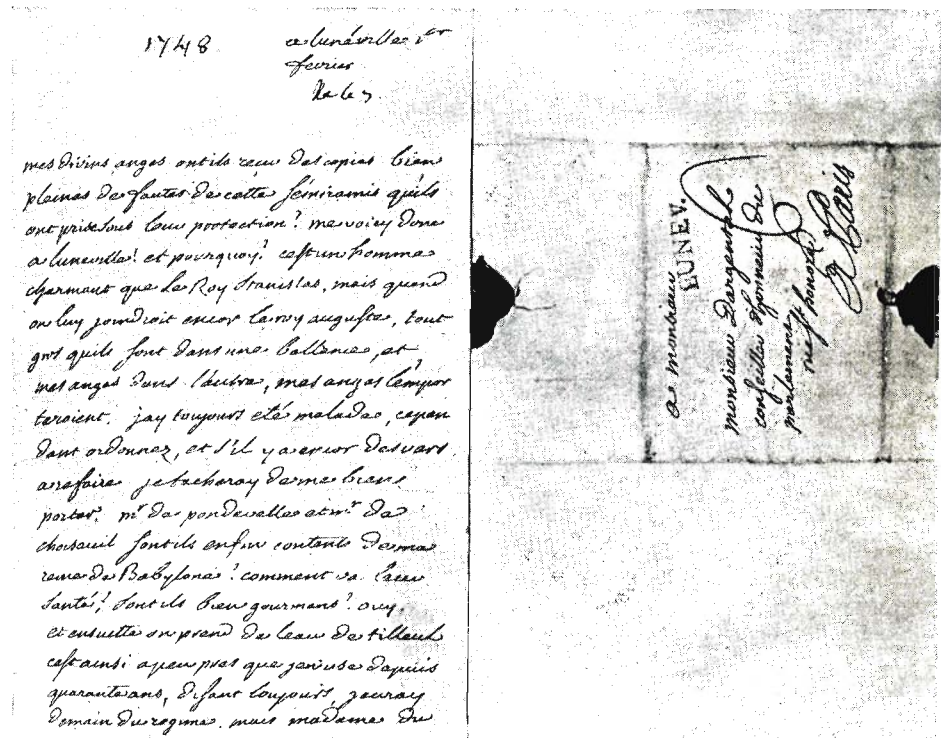 1748
a lunéville 1er
fevrier
mes divins anges ontils recu des copies bien
pleines de fautes de cette sémiramis qu'ils
ont prise sous leur protection? me voicy donc
a luneville! et pourquoy? cest un homme
charmant que le Roy Stanislas, mais quand
on luy joindroit encor le roy auguste, tout
gros quils sont dans une ballence, et
mes anges dans l'autre, mes anges l'empor
teroient. jay toujours été malade, cepen
dant ordonnez, et s'il y a encor des vers
a refaire je tacheray de me bien
porter. mr de pondevelle et mr de
choiseuil sont ils enfin contents de ma
reine de Babylone? comment va leur
santé? sont ils bien gourmans? ouy.
et ensuitte on prend de leau de tilleul
cest ainsi a peu pres que jen use depuis
quarante ans, disant toujours, jauray
demain du regime. mais madame du
LUNEV.
a monsieur
monsieur Dargental
conseiller d'honneur du
parlement
rue st honoré
a Paris